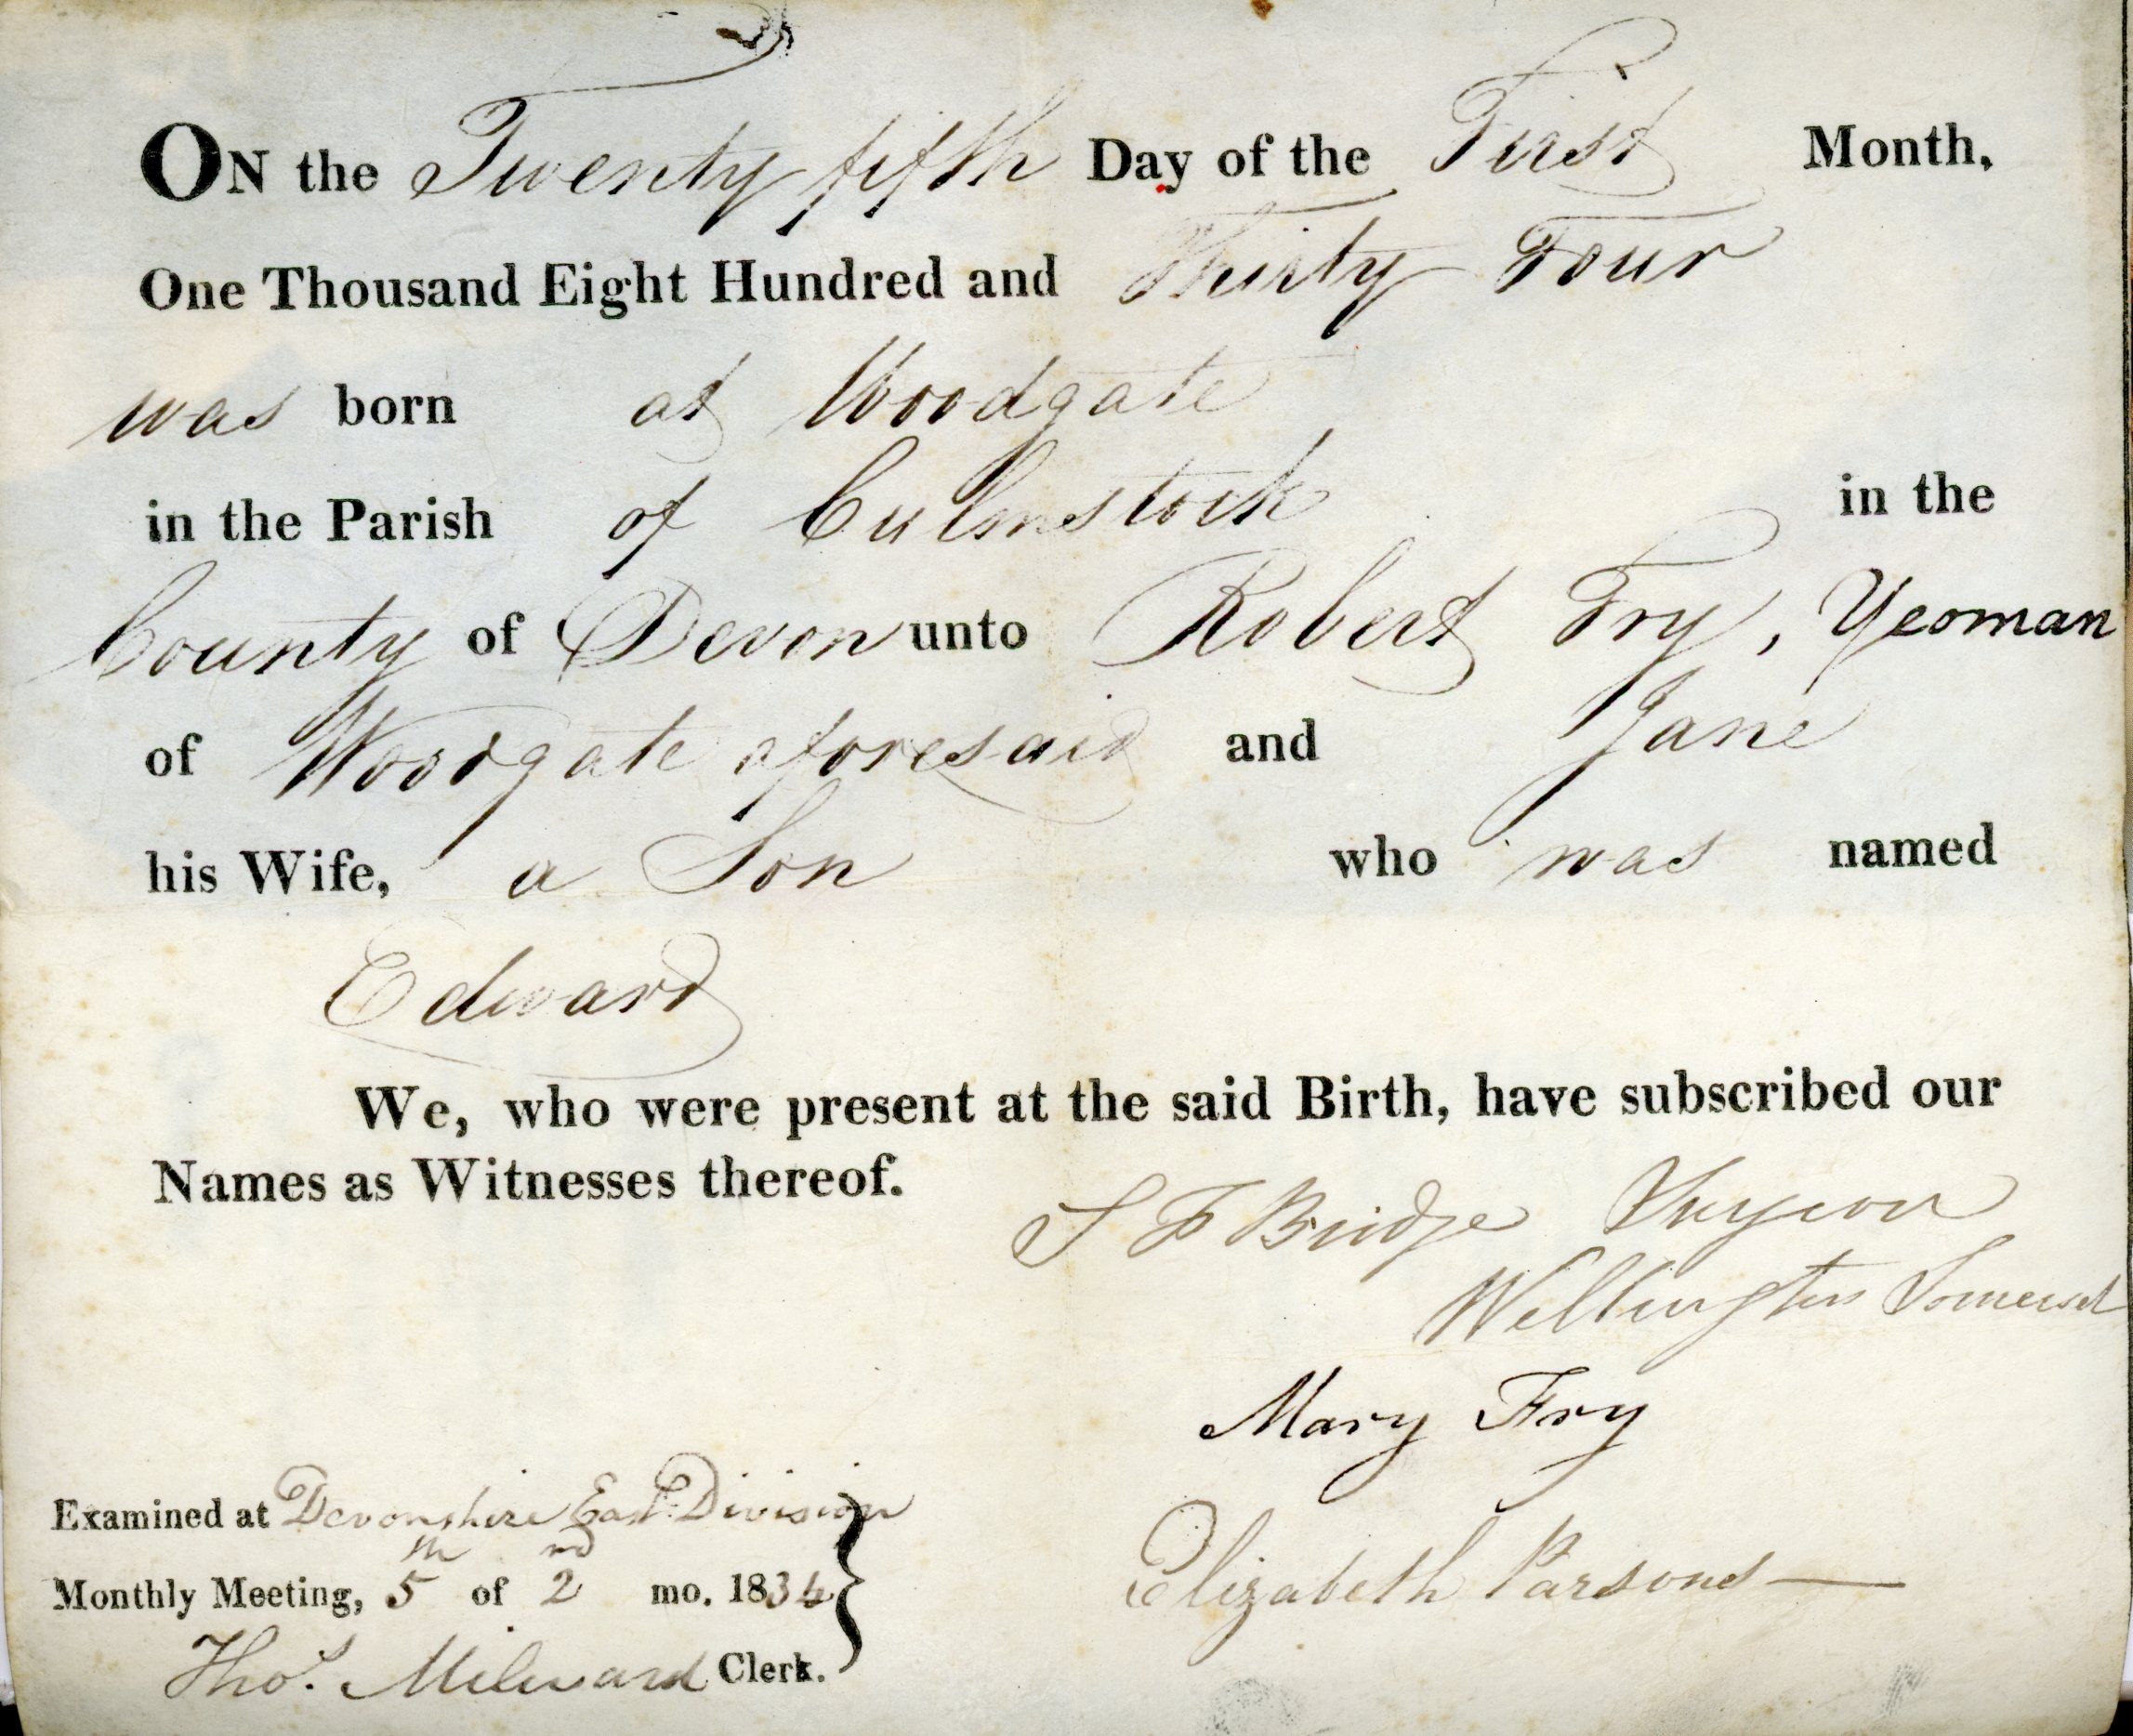 ON the Twenty fifth Day of the First Month,
One Thousand Eight Hundred and Thirty Four
was born at Woodgate
in the Parish of Culmstock in the
County of Devon unto Robert Fry, Yeoman
of Woodgate aforesaid and Jane
his Wife, a Son who was named
Edward
We, who were present at the said Birth, have subscribed our
Names as Witnesses thereof.
S F Bridge Surgeon
Wellington Somerset
Mary Fry
Elizabeth Parsons
Examined at Devonshire East Division
Monthly Meeting, 5th of 2nd mo. 1834
Thos. Milward Clerk.